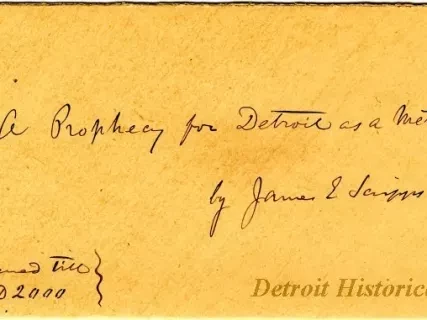 A Prophecy for Detroit as a Me
by James E Scripps
ned till
D 2000
Detroit Historica